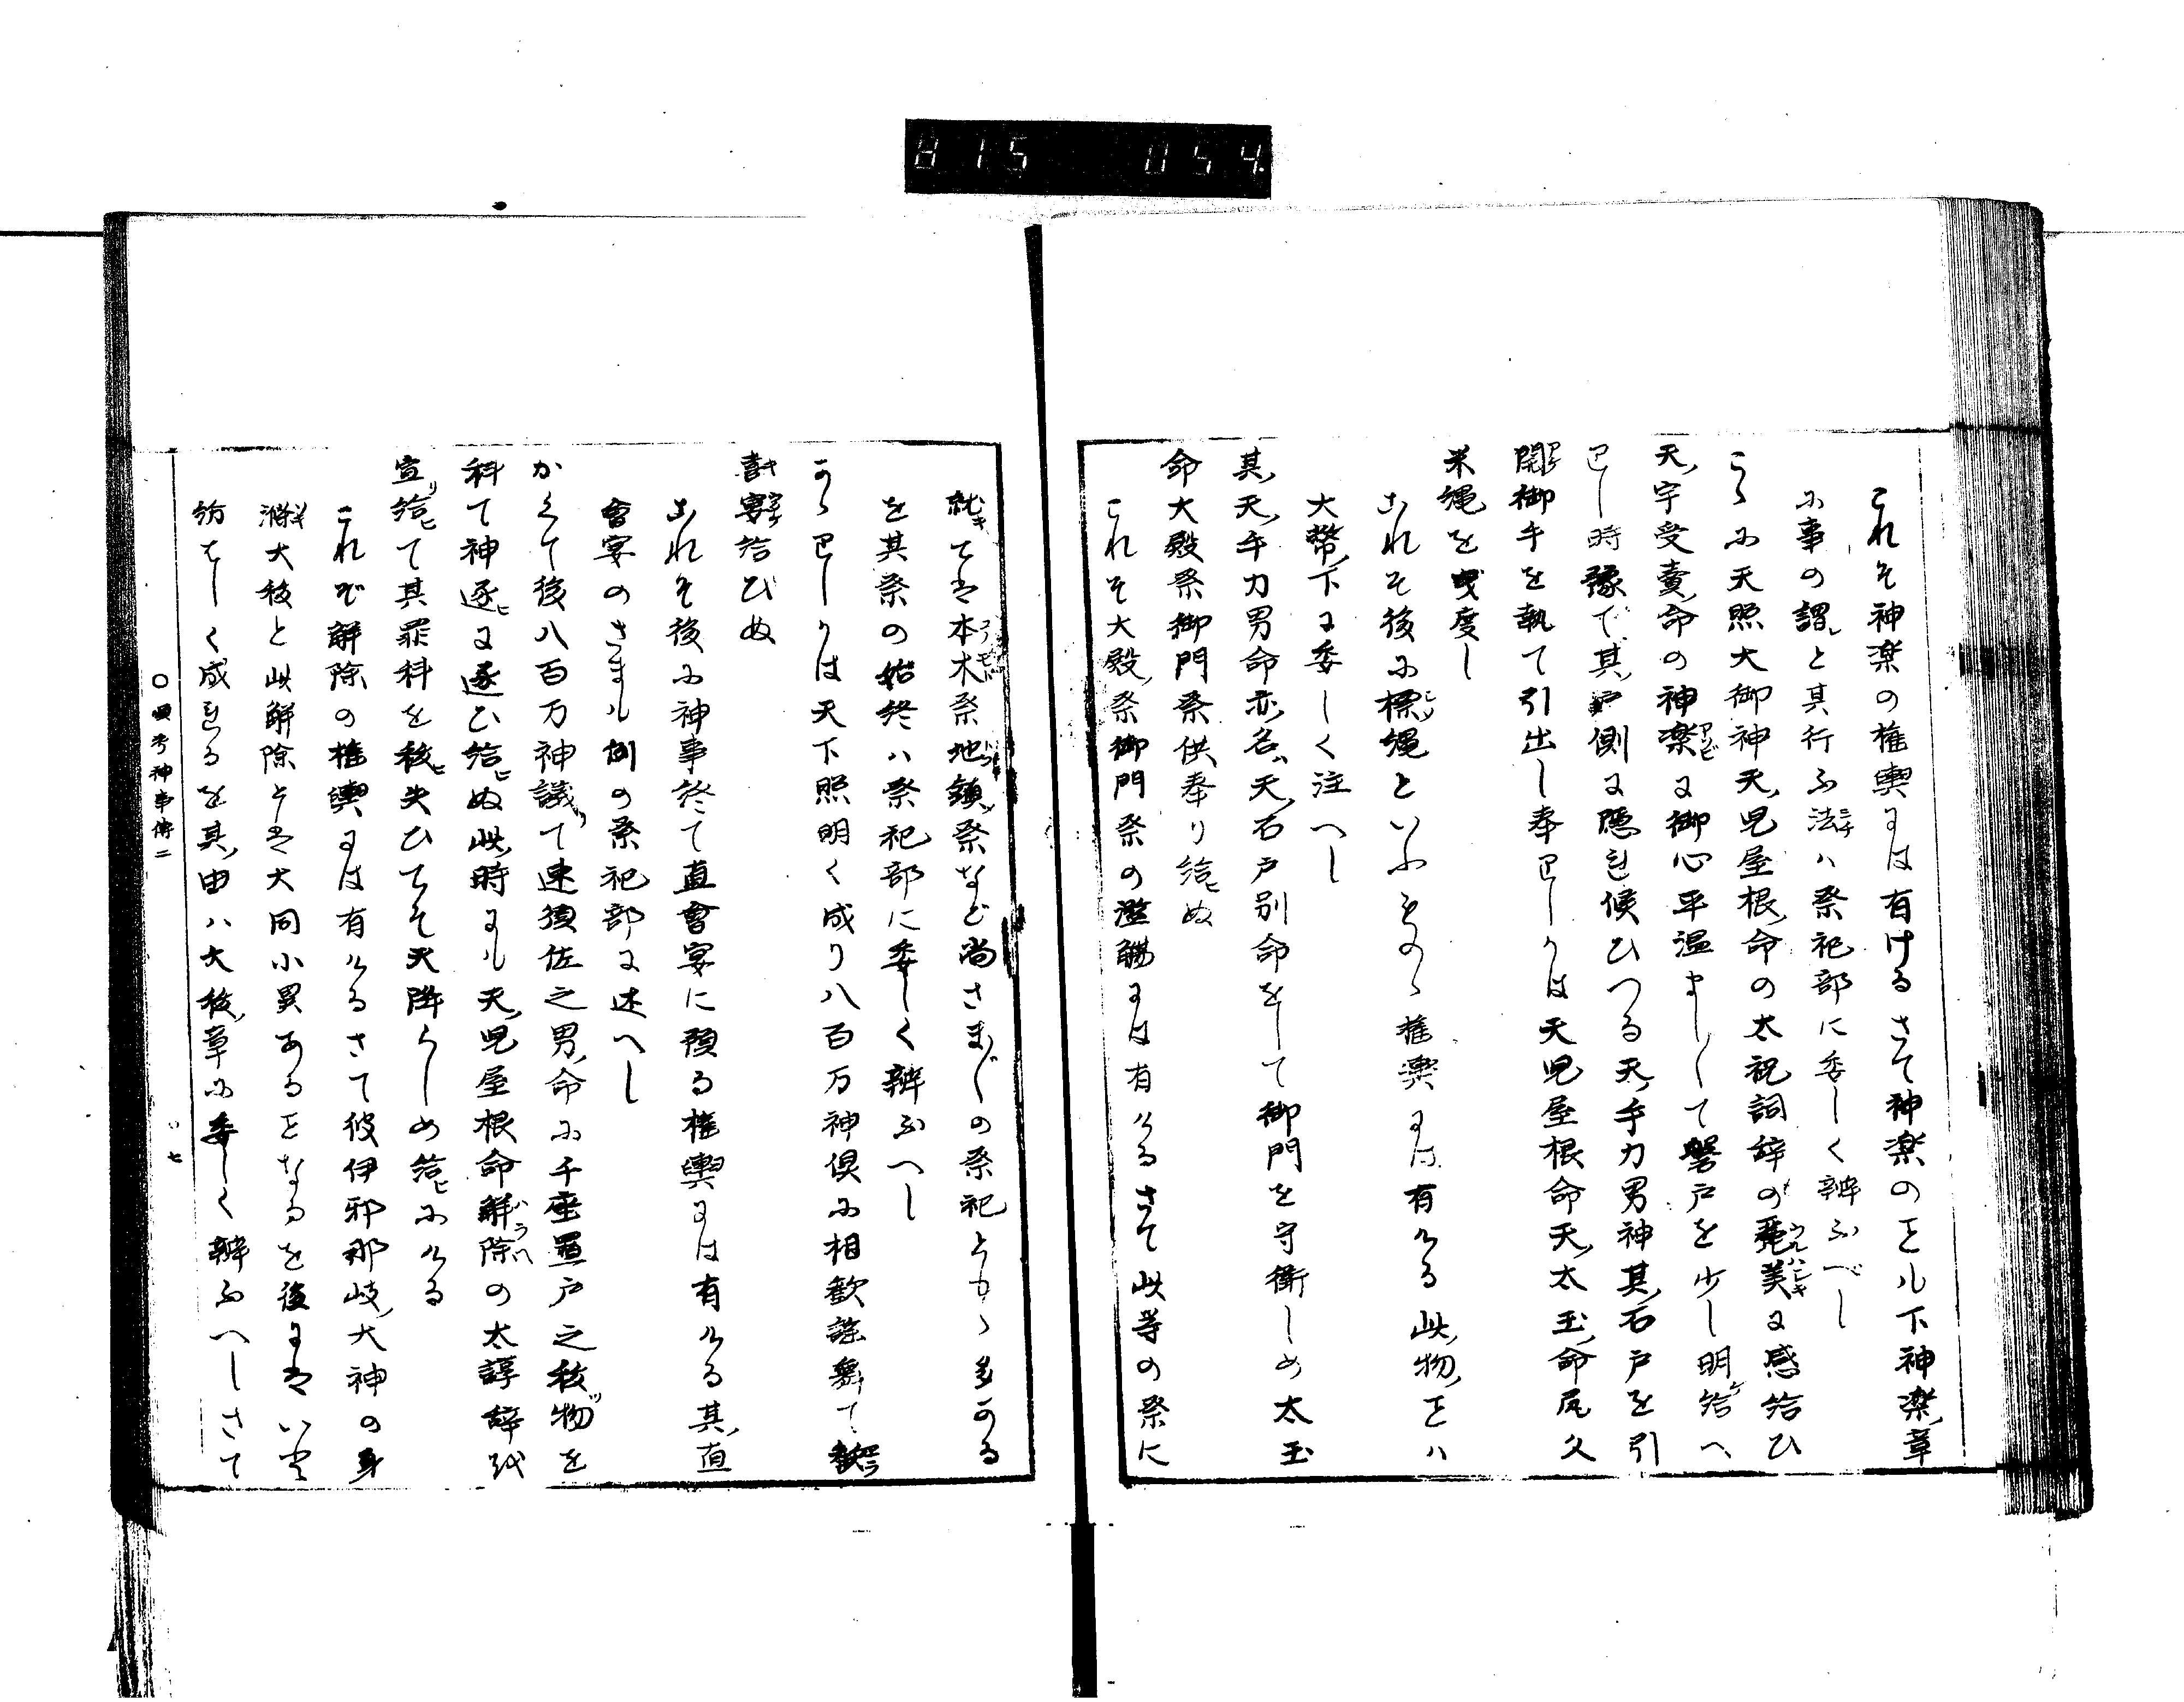 815 054
これそ神楽の権輿には有けるさて神楽のことハ下神楽ノ章
に事の謂レと其行ふ法ハ祭祀部に委しく辨ふべし
こゝに天照大御神天ノ児屋根ノ命の太祝詞辞の麗美に感給ひ
天ノ宇受賣ノ命の神楽に御心平温ましまして磐戸を少し明給へ
りし時豫て其ノ戸側に隠れ候ひつる天ノ手力男神其ノ石戸を引
開御手を執て引出し奉りしかは天児屋根命天ノ太玉ノ命尻久
米縄を曳度し
これそ後に標縄といふものゝ権輿には有ける此ノ物ノことハ
大幣ノ下に委しく注へし
其ノ天ノ手力男命亦ノ名ハ天ノ石戸別命をして御門を守衛しめ太玉
命大殿祭御門祭供奉り給ヒぬ
これそ大殿ノ祭御門祭の濫觴には有けるさて此等の祭に
就キては本木祭地鎮祭など尚さま〴〵の祭祀ともゝ多かる
を其祭の始終ハ祭祀部に委しく辨ふへし
かゝりしかは天下照明く成り八百万神倶に相歓謡舞て歓
喜宴給ひぬ
これそ後に神事終て直會宴に預る権輿には有ける其ノ直
會宴のさまハ例の祭祀部に述へし
かくて後八百万神議リて速須佐之男ノ命に千座置戸之祓ツ物を
科て神逐ヒに逐ひ給ヒぬ此ノ時にハ天ノ児屋根命解除の太諄辞を
宣リ給ヒて其罪科を祓ヒ失ひてそ天降らしめ給ヒにける
これぞ解除の権輿には有けるさて彼伊邪那岐ノ大神の身
滌大祓と此解除とは大同小異あることなるを後にはいと
紛はしく成れるを其ノ由ハ大祓ノ章に委しく辨ふへしさて
〇顕考神事傳二
七